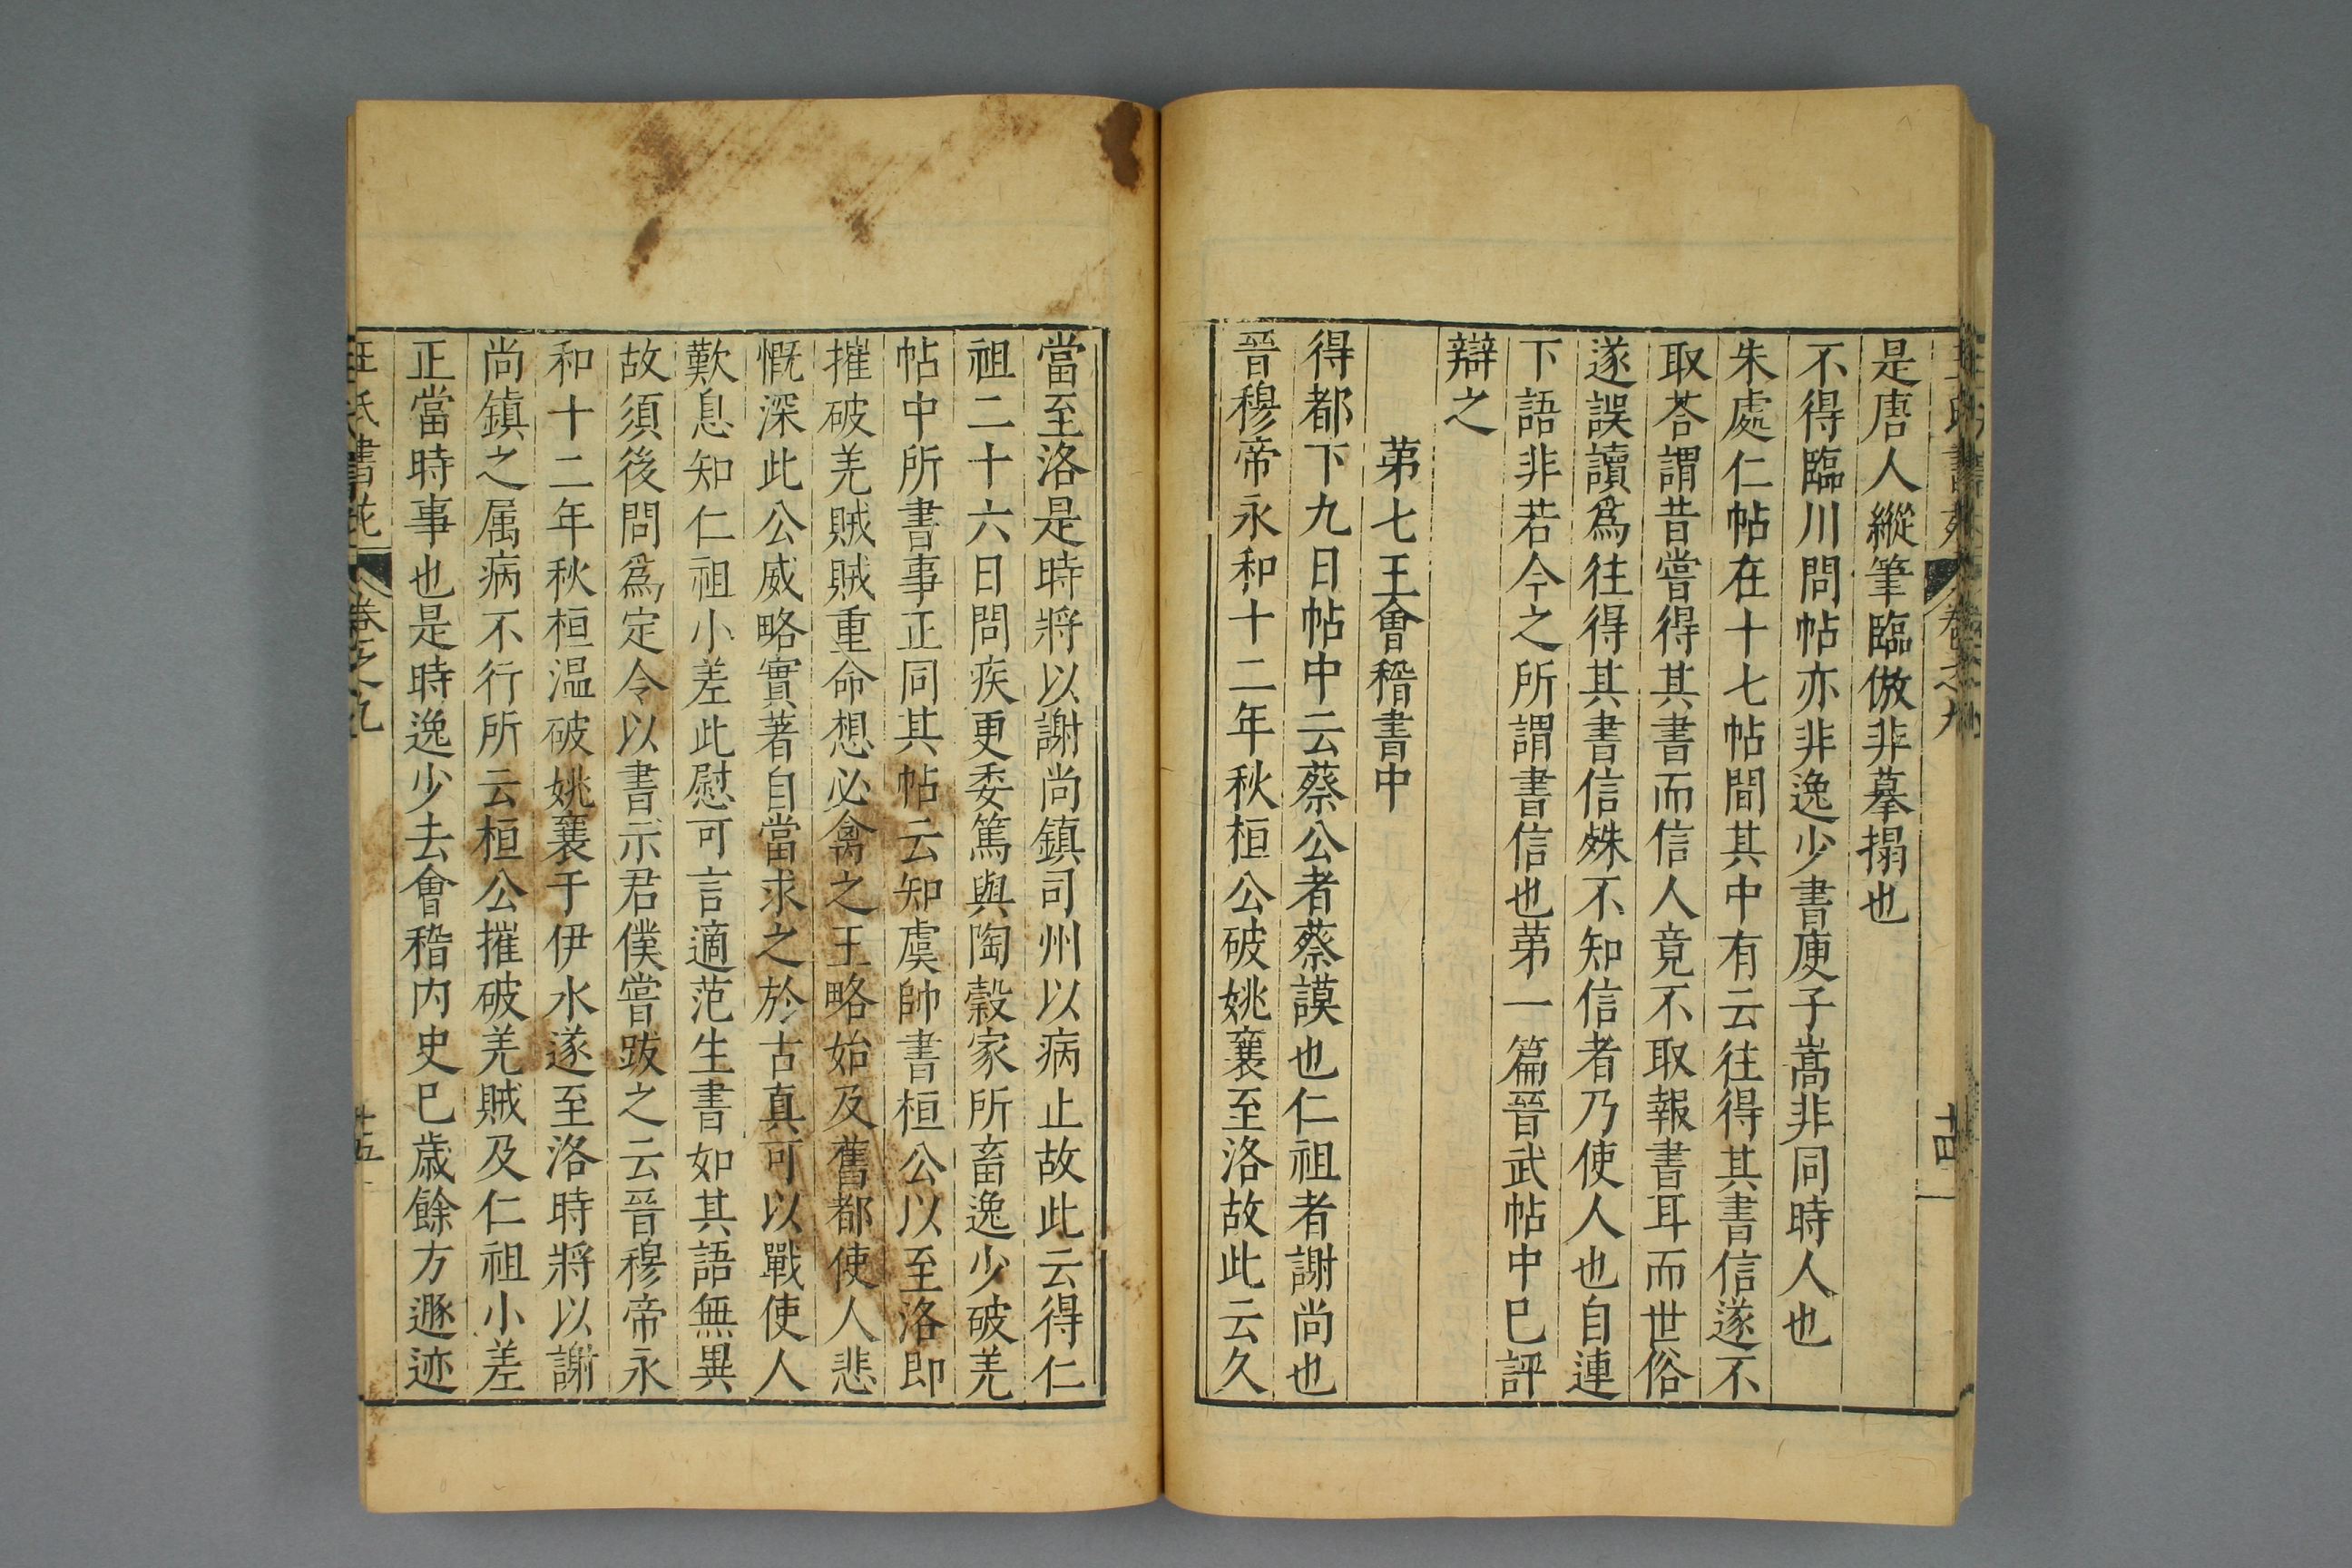 是唐人縱筆臨倣非摹搨也
不得臨川問帖亦非逸少書庾子嵩非同時人也
朱處仁帖在十七帖間其中有云往得其書信遂不
取荅謂昔嘗得其書而信人竟不取報書耳而世俗
遂誤讀爲往得其書信殊不知信者乃使人也自連
下語非若今之所謂書信也苐一篇晉武帖中巳評
辯之
苐七王會稽書中
得都下九日帖中云蔡公者蔡謨也仁祖者謝尚也
晉穆帝永和十二年秋桓公破姚襄至洛故此云久
當至洛是時將以謝尚鎮司州以病止故此云得仁
祖二十六日問疾更委篤與陶縠家所畜逸少破羌
帖中所書事正同其帖云知虞帥書桓公以至洛即
摧破羌賊賊重命想必禽之王略始及舊都使人悲
慨深此公威略實著自當求之於古真可以戰使人
歎息知仁祖小差此慰可言適范生書如其語無異
故須後問爲定令以書示君僕嘗跋之云晉穆帝永
和十二年秋桓温破姚襄于伊水遂至洛時將以謝
尚鎮之属病不行所云桓公摧破羌賊及仁祖小差
正當時事也是時逸少去會稽内史巳歲餘方遯迹
王氏書苑 卷之九 十五